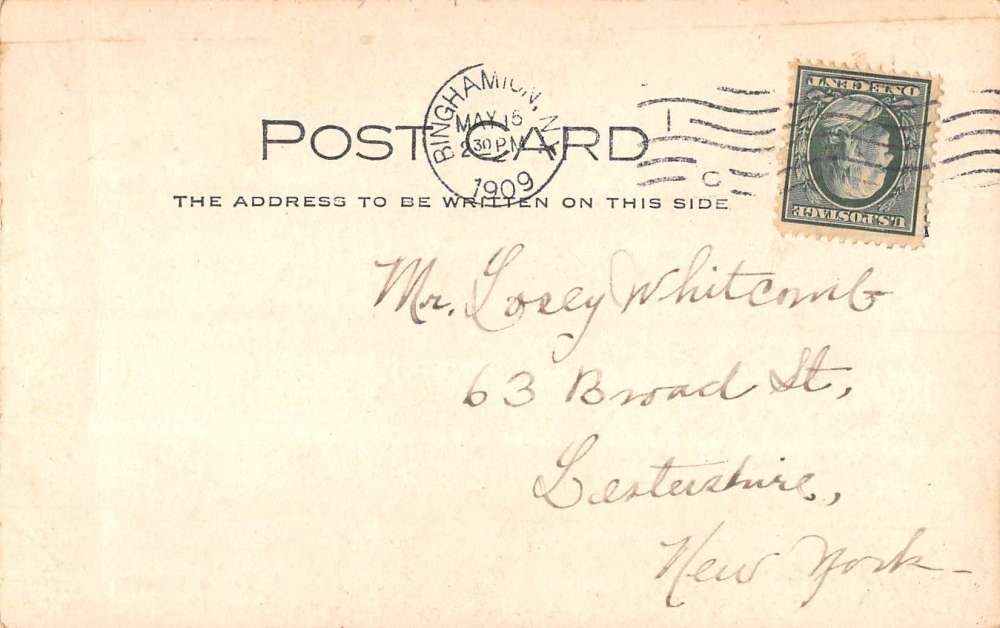 BINGHAMTON, N.Y.
MAY 15
2 30 P.M.
1909
I
C
ONE CENT
U.S. POSTAGE
POST CARD
THE ADDRESS TO BE WRITTEN ON THIS SIDE
Mr. Losey Whitcomb
63 Broad St.,
Lestershire,
New York-